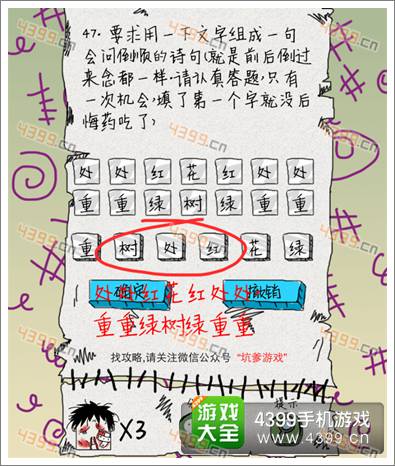 47. 要求用一下文字组成一句
会问倒顺的诗句(就是前后倒过
来念都一样,请认真答题,只有
一次机会,填了第一个字就没后
悔药吃了)
处 处 红 花 红 处 处
重 重 绿 树 绿 重 重
重 树 处 红 花 绿
确定 撤销
处处红花红处处
重重绿树绿重重
找攻略,请关注微信公众号 “坑爹游戏”
X3
提示
游戏大全
4399手机游戏
www.4399.cn
4399.cn